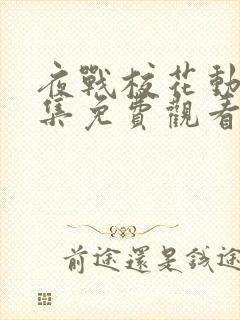 夜戰校花動
集免費觀看
前途還是錢途